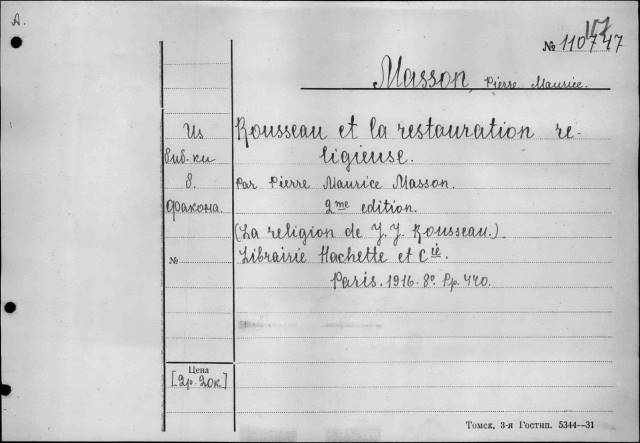 A.
№ 110747
Masson, Pierre Maurice.
Из
биб-ки
в.
Факона.
№
Rousseau et la restauration re-
ligieuse.
Par Pierre Maurice Masson.
2me edition.
(La religion de J. J. Rousseau.)
Librairie Hachette et Cie.
Paris. 1916. 8º. Pp. 440.
Цена
[2р. 20к.]
Томск, 3-я Гостип. 5344—31